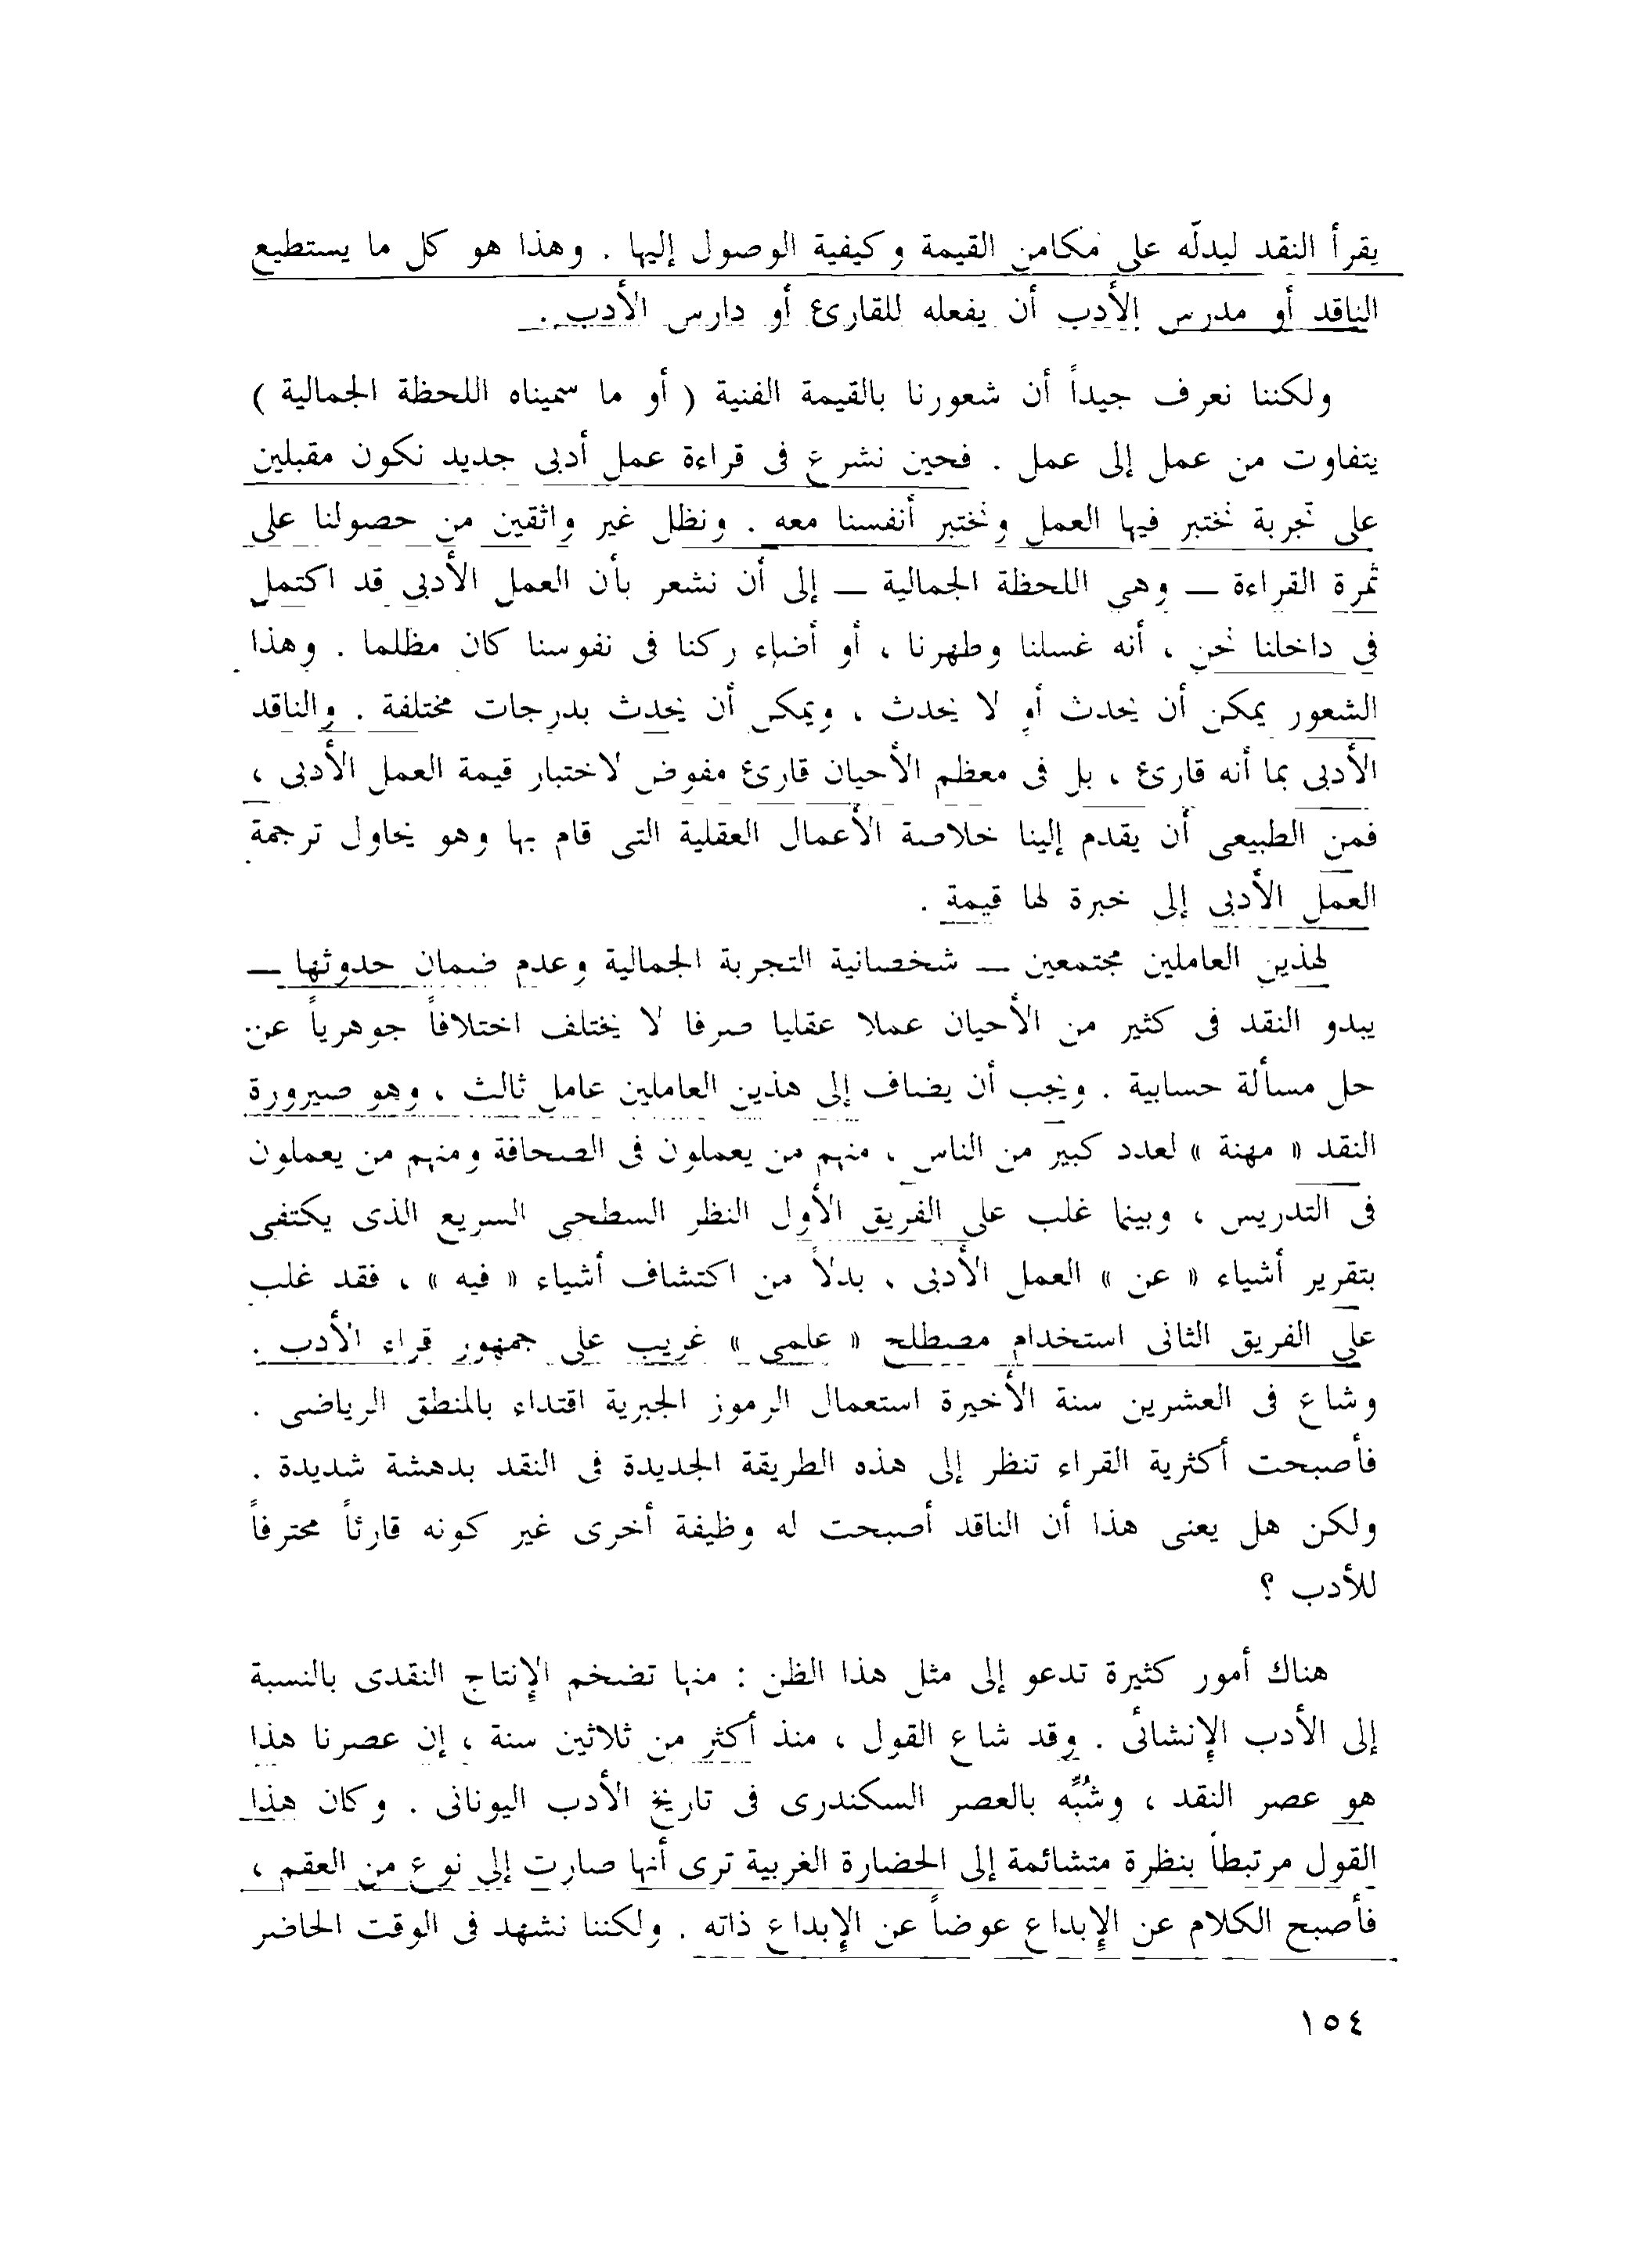 يقرأ النقد ليدلّه على مكامن القيمة وكيفية الوصول إليها . وهذا هو كل ما يستطيع
الناقد أو مدرس الأدب أن يفعله للقارئ أو دارس الأدب .
ولكننا نعرف جيداً أن شعورنا بالقيمة الفنية ( أو ما سميناه اللحظة الجمالية )
يتفاوت من عمل إلى عمل . فحين نشرع فى قراءة عمل أدبى جديد نكون مقبلين
على تجربة نختبر فيها العمل ونختبر أنفسنا معه . ونظل غير واثقين من حصولنا على
ثمرة القراءة — وهى اللحظة الجمالية — إلى أن نشعر بأن العمل الأدبى قد اكتمل
فى داخلنا نحن ، أنه غسلنا وطهرنا ، أو أضاء ركنا فى نفوسنا كان مظلما . وهذا
الشعور يمكن أن يحدث أو لا يحدث ، ويمكن أن يحدث بدرجات مختلفة . والناقد
الأدبى بما أنه قارئ ، بل فى معظم الأحيان قارئ مفوض لاختبار قيمة العمل الأدبى ،
فمن الطبيعى أن يقدم إلينا خلاصة الأعمال العقلية التى قام بها وهو يحاول ترجمة
العمل الأدبى إلى خبرة لها قيمة .
لهذين العاملين مجتمعين — شخصانية التجربة الجمالية وعدم ضمان حدوثها —
يبدو النقد فى كثير من الأحيان عملا عقليا صرفا لا يختلف اختلافاً جوهرياً عن
حل مسألة حسابية . ويجب أن يضاف إلى هذين العاملين عامل ثالث ، وهو صيرورة
النقد « مهنة » لعدد كبير من الناس ، منهم من يعملون فى الصحافة ومنهم من يعملون
فى التدريس ، وبينما غلب على الفريق الأول النظر السطحى السريع الذى يكتفى
بتقرير أشياء « عن » العمل الأدبى ، بدلاً من اكتشاف أشياء « فيه » ، فقد غلب
على الفريق الثانى استخدام مصطلح « علمى » غريب على جمهور قراء الأدب .
وشاع فى العشرين سنة الأخيرة استعمال الرموز الجبرية اقتداء بالمنطق الرياضى .
فأصبحت أكثرية القراء تنظر إلى هذه الطريقة الجديدة فى النقد بدهشة شديدة .
ولكن هل يعنى هذا أن الناقد أصبحت له وظيفة أخرى غير كونه قارئاً محترفاً
للأدب ؟
هناك أمور كثيرة تدعو إلى مثل هذا الظن : منها تضخم الإنتاج النقدى بالنسبة
إلى الأدب الإنشائى . وقد شاع القول ، منذ أكثر من ثلاثين سنة ، إن عصرنا هذا
هو عصر النقد ، وشُبِّه بالعصر السكندرى فى تاريخ الأدب اليونانى . وكان هذا
القول مرتبطاً بنظرة متشائمة إلى الحضارة الغربية ترى أنها صارت إلى نوع من العقم ،
فأصبح الكلام عن الإبداع عوضاً عن الإبداع ذاته . ولكننا نشهد فى الوقت الحاضر
١٥٤